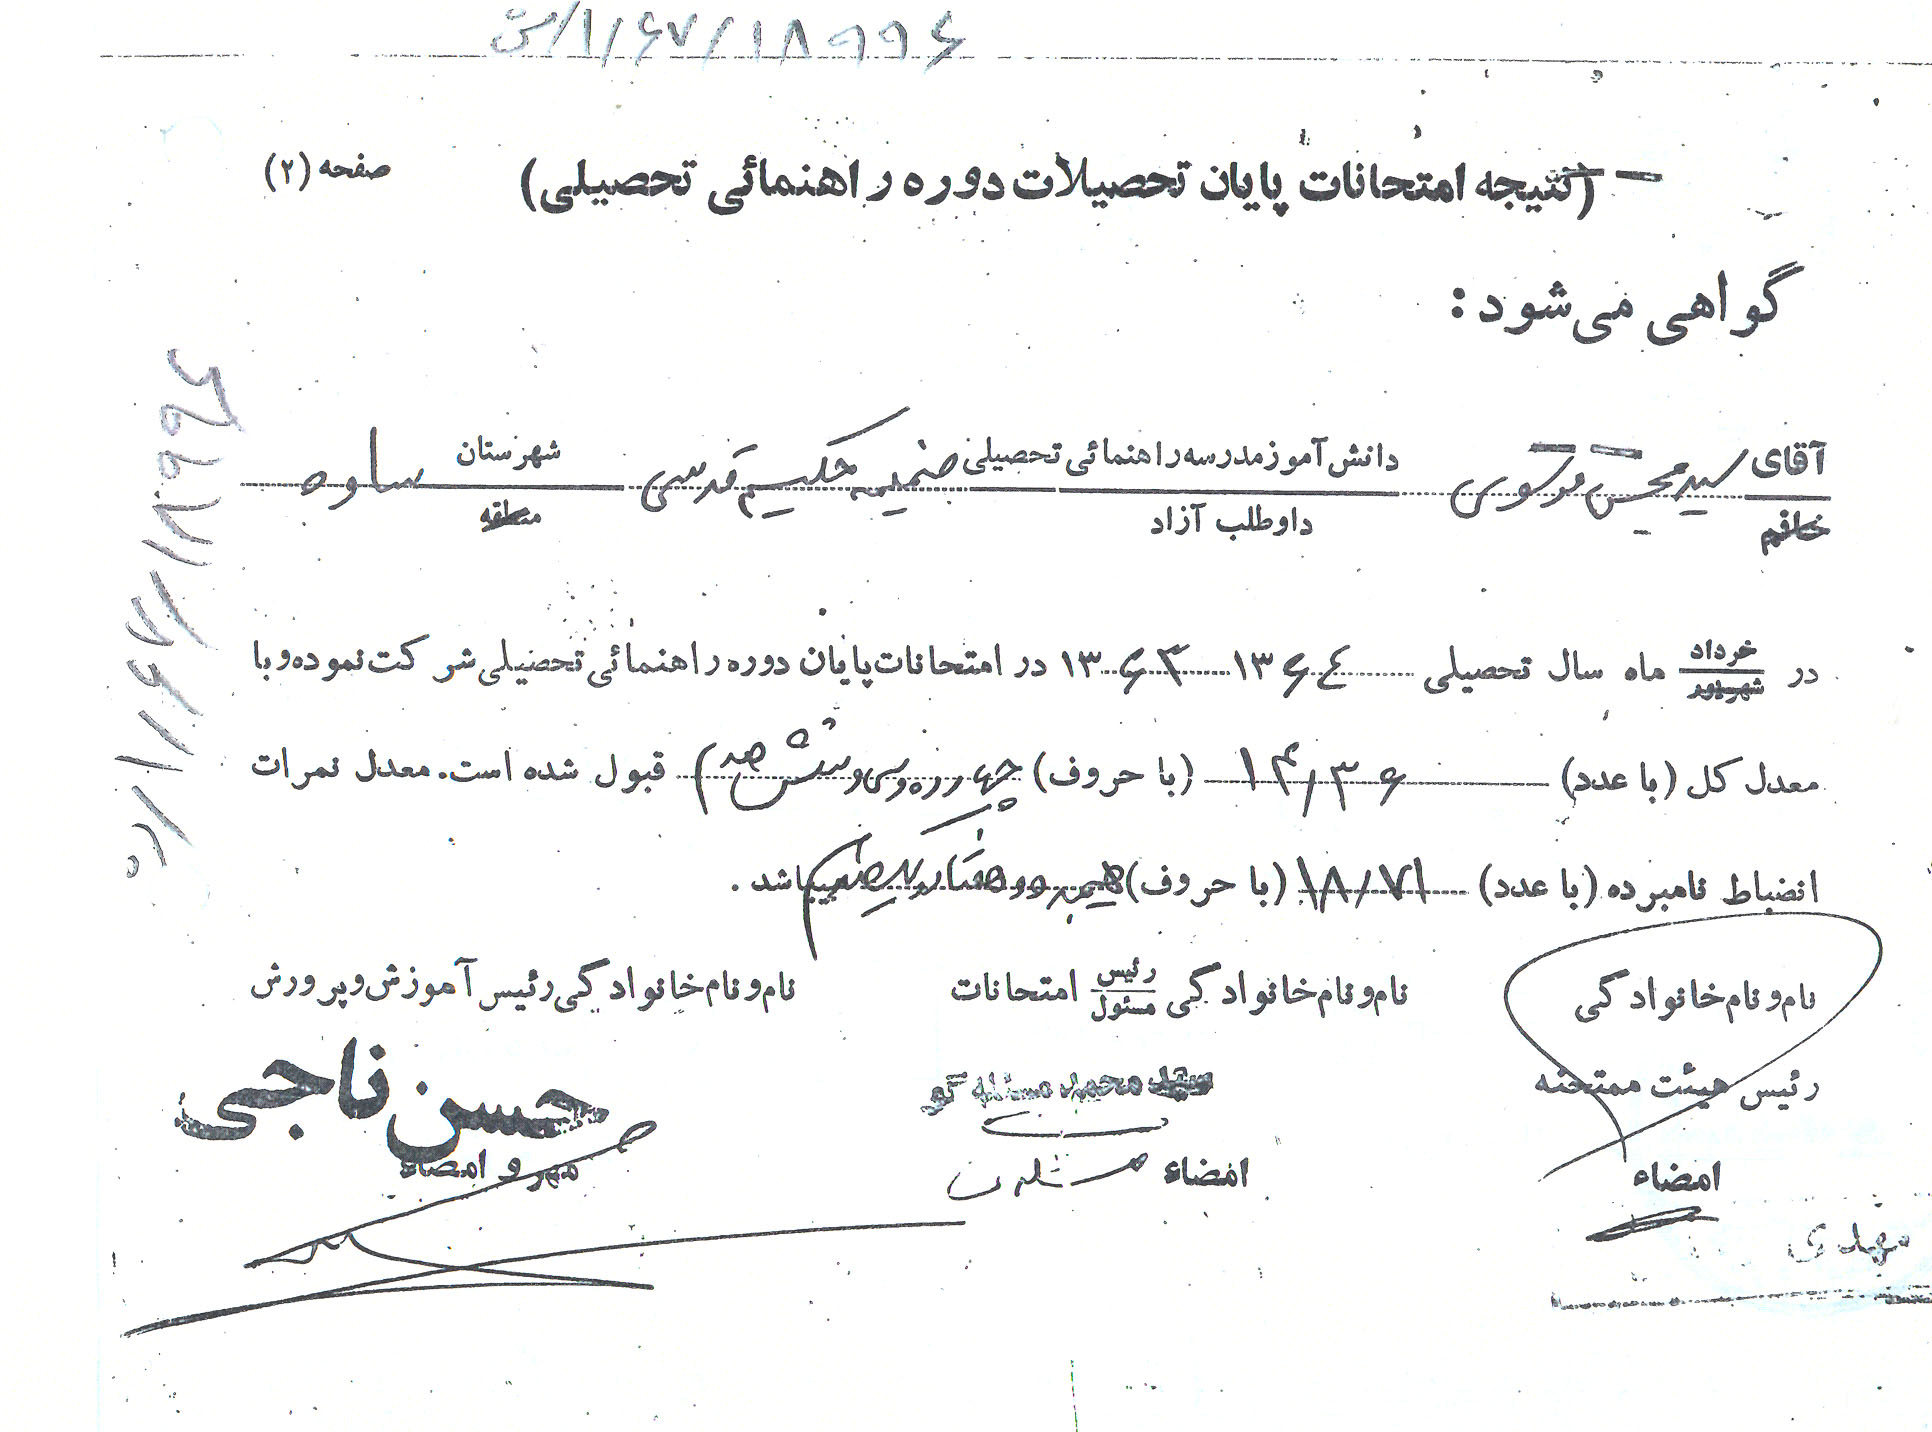 ش/۱/۶۷/۱۸۹۹۶
صفحه (۲)
(نتیجه امتحانات پایان تحصیلات دوره راهنمائی تحصیلی)
گواهی می‌شود:
آقای سید محسن موسوی دانش آموز مدرسه راهنمائی تحصیلی ضمیمه حکیم قدسی شهرستان ساوه
خانم داوطلب آزاد منطقه
در خرداد ماه سال تحصیلی ۱۳۶۴ ۱۳۶۳ در امتحانات پایان دوره راهنمائی تحصیلی شرکت نموده و با
شهریور
معدل کل (با عدد) ۱۴/۳۶ (با حروف) چهارده و سی و شش صدم قبول شده است. معدل نمرات
انضباط نامبرده (با عدد) ۱۸/۷۱ (با حروف) هیجده و هفتاد و یک صدم میباشد.
نام و نام خانوادگی نام و نام خانوادگی رئیس امتحانات نام و نام خانوادگی رئیس آموزش و پرورش
مسئول
رئیس هیئت ممتحنه سید محمد مسئله گو حسن ناجی
امضاء امضاء مهر و امضاء
مهدی
ش/۱/۶۷/۱۸۹۹۶